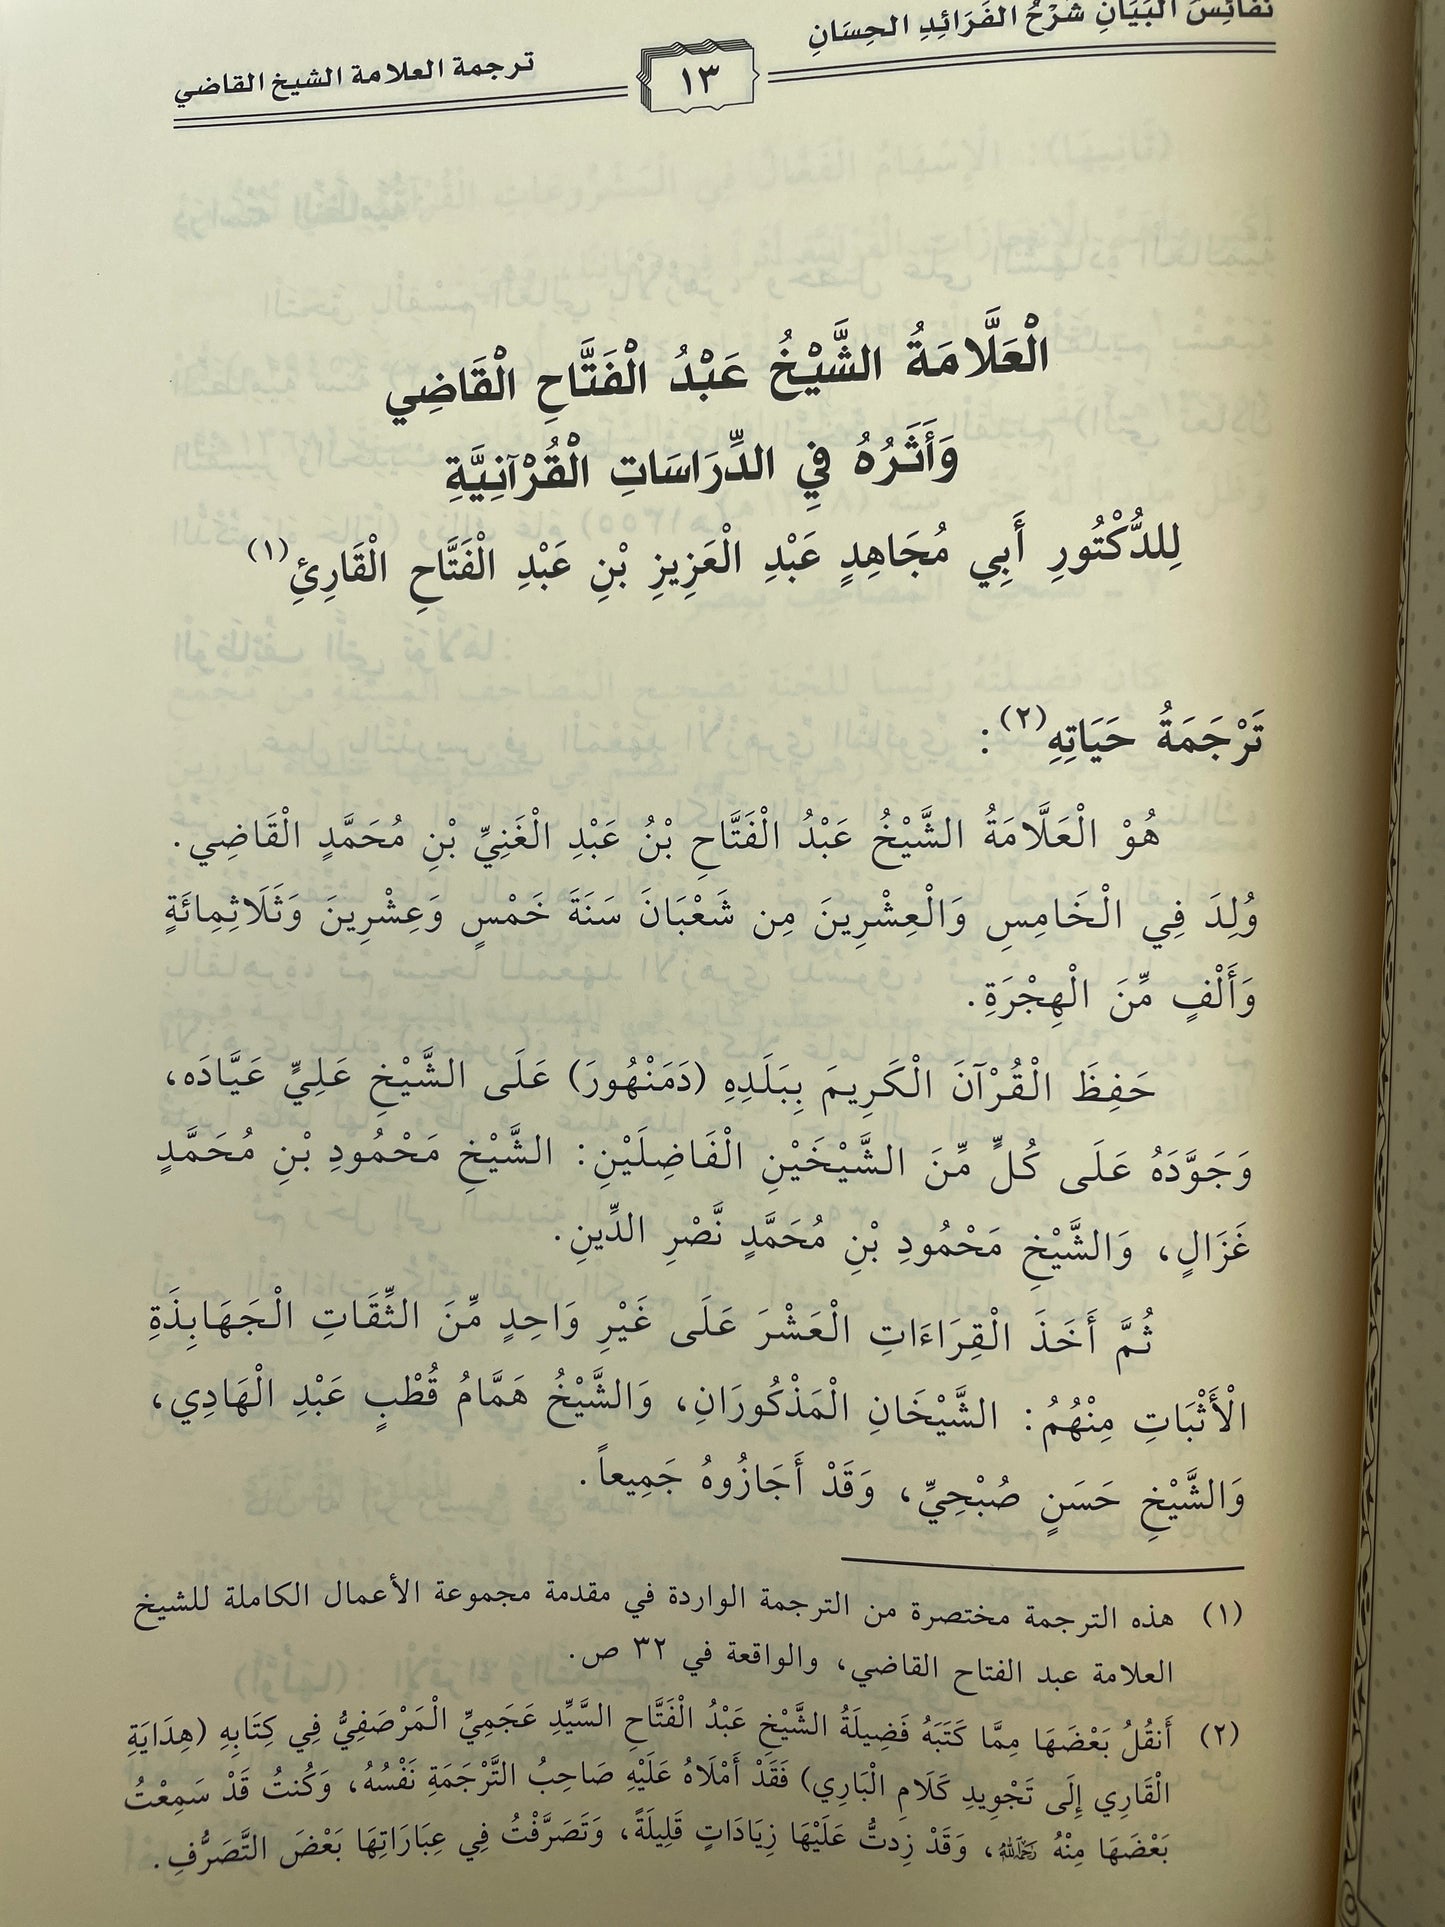 نَفَائِسُ الْبَيَانِ شَرْحُ الفَرَائِدِ الحِسَانِ
١٣
ترجمة العلامة الشيخ القاضي
الْعَلَّامَةُ الشَّيْخُ عَبْدُ الْفَتَّاحِ الْقَاضِي
وَأَثَرُهُ فِي الدِّرَاسَاتِ الْقُرْآنِيَّةِ
لِلدُّكْتُورِ أَبِي مُجَاهِدٍ عَبْدِ الْعَزِيزِ بْنِ عَبْدِ الْفَتَّاحِ الْقَارِئِ(١)
تَرْجَمَةُ حَيَاتِهِ(٢):
هُوْ الْعَلَّامَةُ الشَّيْخُ عَبْدُ الْفَتَّاحِ بْنُ عَبْدِ الْغَنِيِّ بْنِ مُحَمَّدٍ الْقَاضِي.
وُلِدَ فِي الْخَامِسِ وَالْعِشْرِينَ مِن شَعْبَانَ سَنَةَ خَمْسٍ وَعِشْرِينَ وَثَلَاثِمِائَةٍ
وَأَلْفٍ مِّنَ الْهِجْرَةِ.
حَفِظَ الْقُرْآنَ الْكَرِيمَ بِبَلَدِهِ (دَمَنْهُورَ) عَلَى الشَّيْخِ عَلِيٍّ عَيَّادَه،
وَجَوَّدَهُ عَلَى كُلٍّ مِّنَ الشَّيْخَيْنِ الْفَاضِلَيْنِ: الشَّيْخِ مَحْمُودِ بْنِ مُحَمَّدٍ
غَزَالٍ، وَالشَّيْخِ مَحْمُودِ بْنِ مُحَمَّدٍ نَّصْرِ الدِّينِ.
ثُمَّ أَخَذَ الْقِرَاءَاتِ الْعَشْرَ عَلَى غَيْرِ وَاحِدٍ مِّنَ الثِّقَاتِ الْجَهَابِذَةِ
الْأَثْبَاتِ مِنْهُمُ: الشَّيْخَانِ الْمَذْكُورَانِ، وَالشَّيْخُ هَمَّامُ قُطْبٍ عَبْدِ الْهَادِي،
وَالشَّيْخِ حَسَنٍ صُبْحِيٍّ، وَقَدْ أَجَازُوهُ جَمِيعاً.
(١) هذه الترجمة مختصرة من الترجمة الواردة في مقدمة مجموعة الأعمال الكاملة للشيخ
العلامة عبد الفتاح القاضي، والواقعة في ٣٢ ص.
(٢) أَنقُلُ بَعْضَهَا مِمَّا كَتَبَهُ فَضِيلَةُ الشَّيْخِ عَبْدُ الْفَتَّاحِ السَّيِّدِ عَجَمِيِّ الْمَرْصَفِيُّ فِي كِتَابِهِ (هِدَايَةِ
الْقَارِي إِلَى تَجْوِيدِ كَلَامِ الْبَارِي) فَقَدْ أَمْلَاهُ عَلَيْهِ صَاحِبُ التَّرْجَمَةِ نَفْسُهُ، وَكُنتُ قَدْ سَمِعْتُ
بَعْضَهَا مِنْهُ رَحِمَهُ اللَّهُ، وَقَدْ زِدتُّ عَلَيْهَا زِيَادَاتٍ قَلِيلَةً، وَتَصَرَّفْتُ فِي عِبَارَاتِهَا بَعْضَ التَّصَرُّفِ.